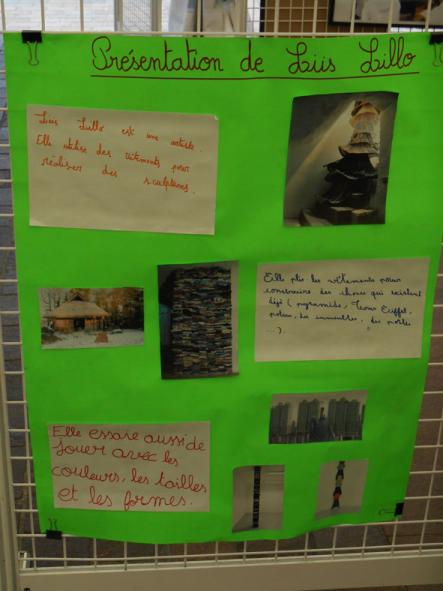 Présentation de Liis Lillo
Liis Lillo est une artiste.
Elle utilise des vêtements pour
réaliser des sculptures.
Elle plie les vêtements pour
construire des choses qui existent
déjà ( pyramide, Tour Eiffel,
poteau, des immeubles, des portes
...).
Elle essaie aussi de
jouer avec les
couleurs, les tailles
et les formes.